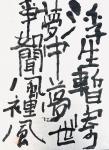 浮生暫寄
夢中夢世
事如聞風裡風